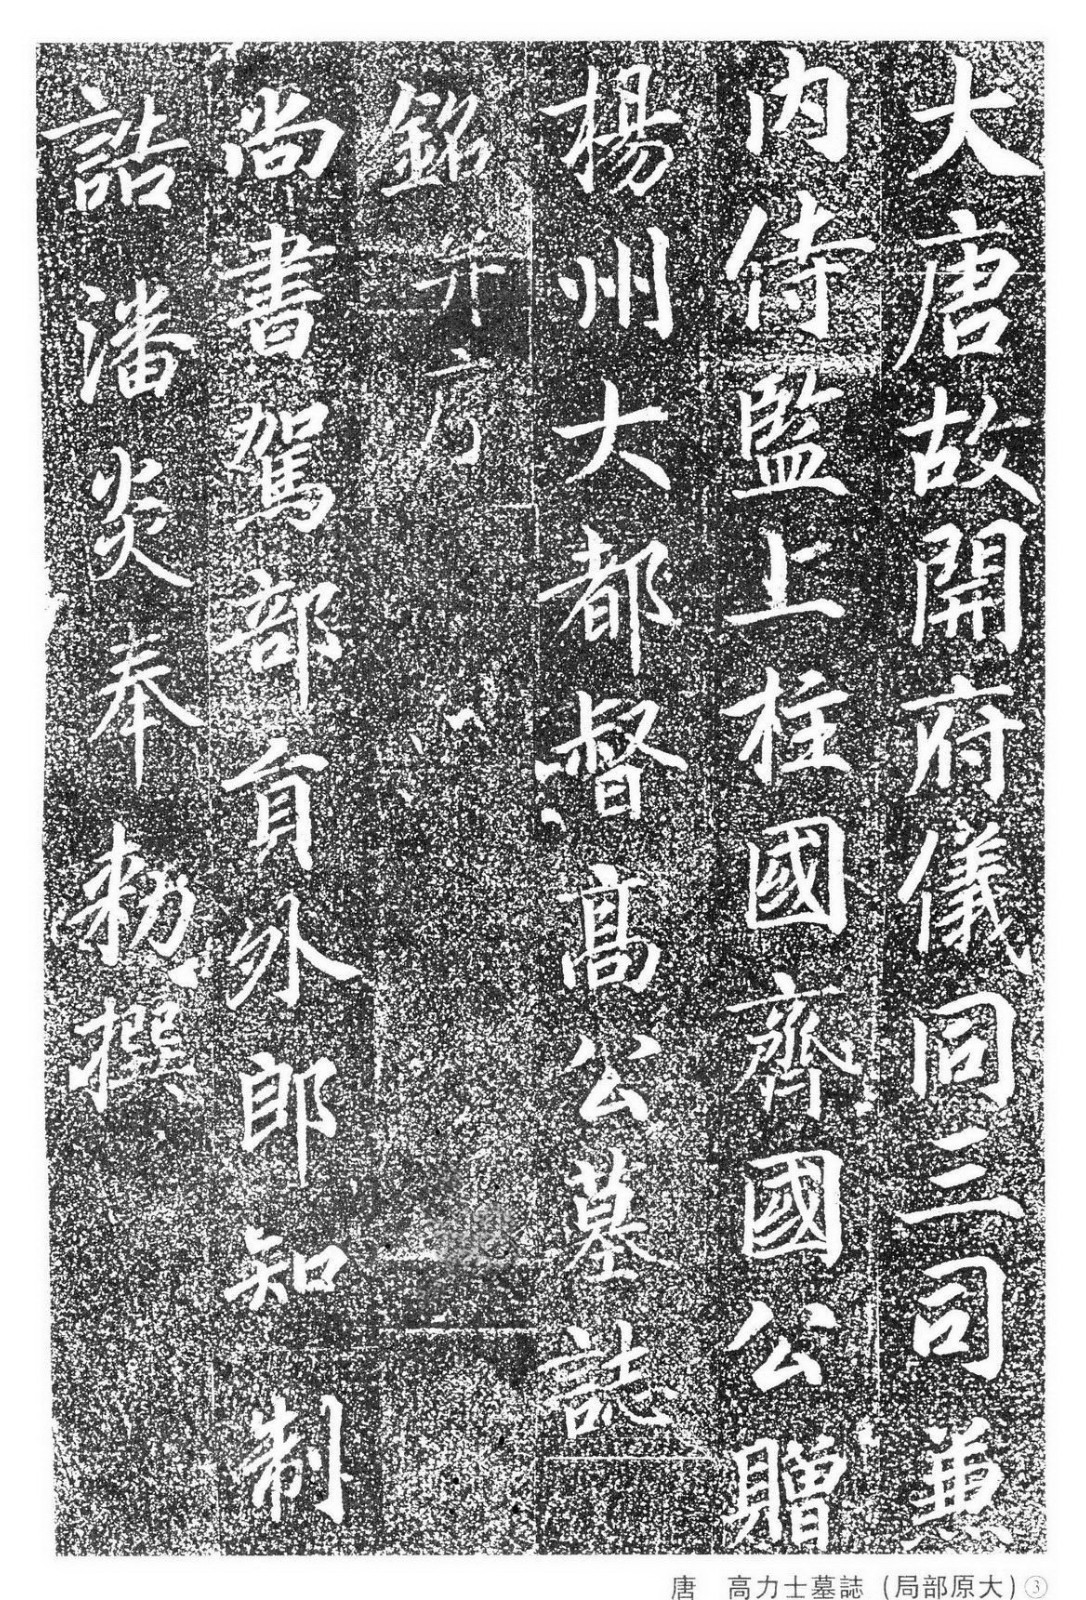 大唐故開府儀同三司兼
內侍監上柱國齊國公贈
楊州大都督高公墓誌
銘并序
尚書駕部員外郎知制
誥潘炎奉勑撰
唐 高力士墓誌(局部原大)③